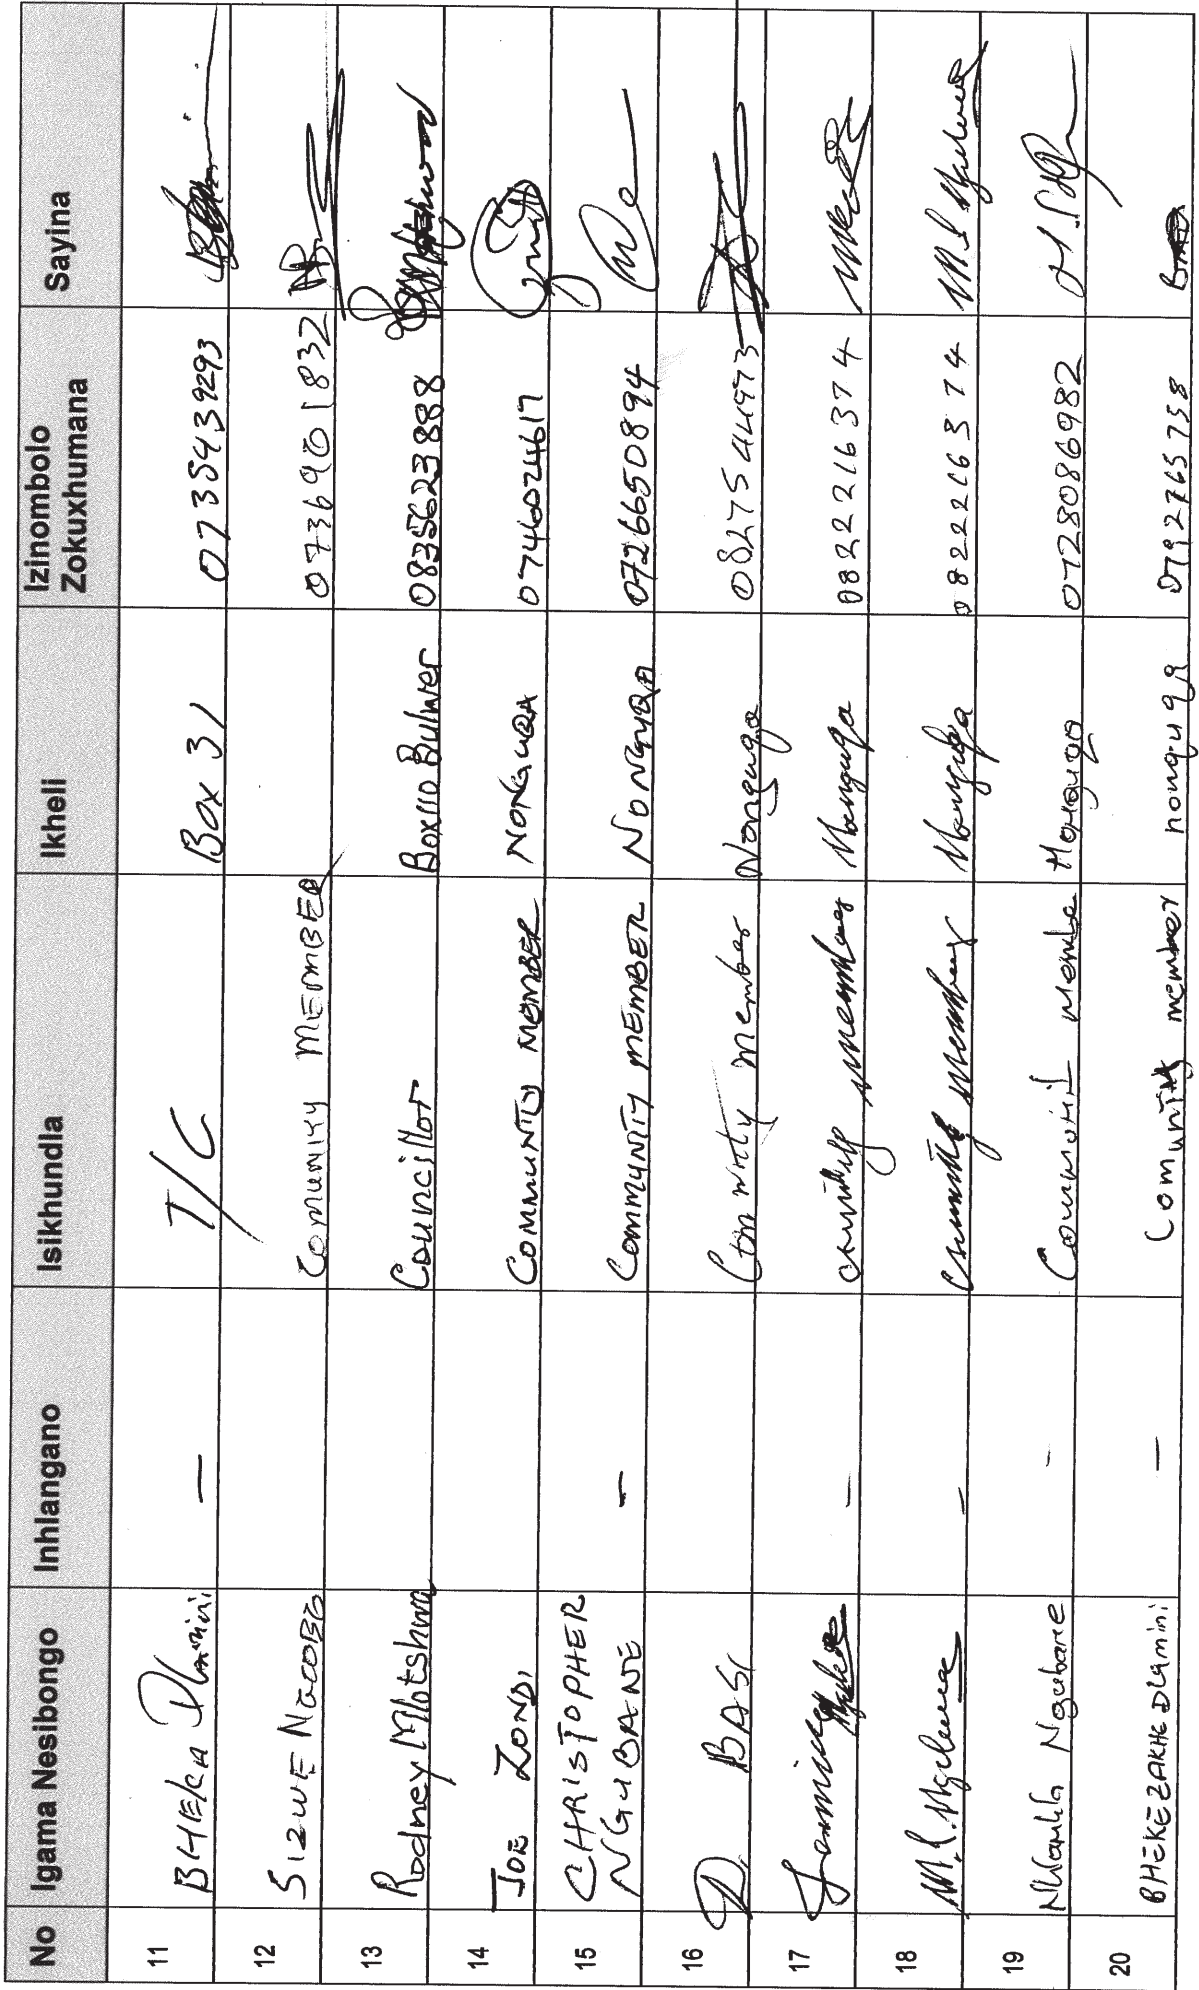 No Igama Nesibongo Inhlangano Isikhundla Ikheli Izinombolo Zokuxhumana Sayina
11 BHEKA Dlamini — T/C Box 31 0735439293
12 SIZWE NGCOBO COMUNITY MEMBER 0736901832
13 Rodney Mlotshwa Councillor Box 110 Bulwer 0835623888
14 JOE ZONDI COMMUNITY MEMBER NONGUQA 0746024617
15 CHRISTOPHER NGUBANE - COMMUNITY MEMBER NONGUQA 0726650894
16 D BASI Comunity member Nonguqa 0827544973
17 - member Nonguqa 0822216374
18 - member Nonguqa 0822216374
19 Nhlanhla Ngubane - member 0728086982
20 BHEKEZAKHE DLAMINI — Comunity member nonguqa 0792765738